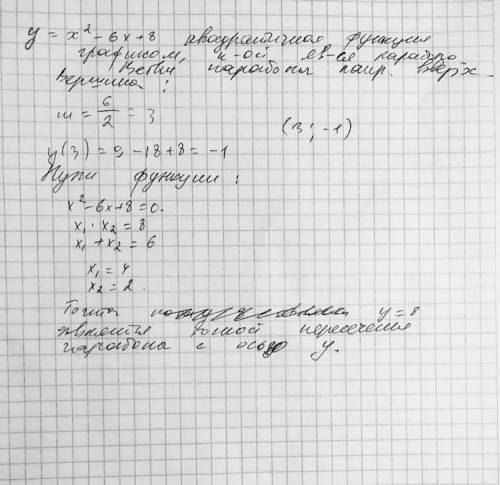 y = x² - 6x + 8 квадратичная функция
графиком, к-ой яв-ся парабола
Ветви параболы напр. вверх
Вершина:
m = 6/2 = 3
(3; -1)
y(3) = 9 - 18 + 8 = -1
Нули функции:
x² - 6x + 8 = 0.
x₁ · x₂ = 8
x₁ + x₂ = 6
x₁ = 4
x₂ = 2.
Точка y = 8
является точкой пересечения
парабола с осью y.